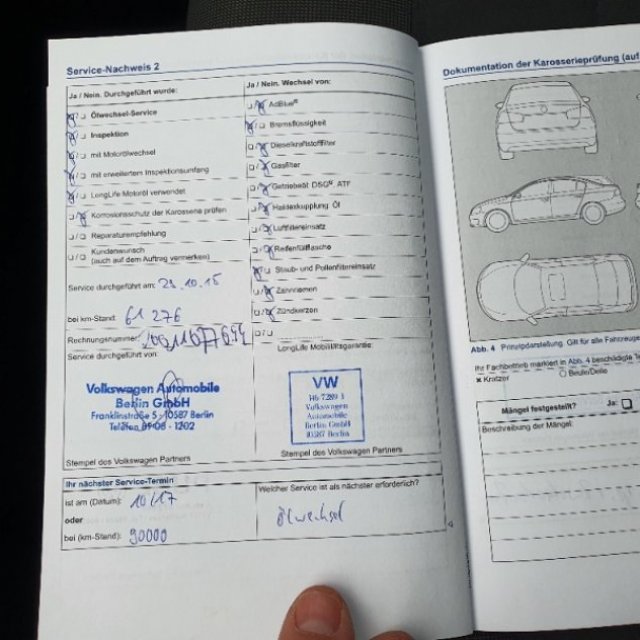 Service-Nachweis 2
Ja / Nein. Durchgeführt wurde:
Ölwechsel-Service
Inspektion
mit Motorölwechsel
mit erweitertem Inspektionsumfang
LongLife Motoröl verwendet
Korrosionsschutz der Karosserie prüfen
Reparaturempfehlung
Kundenwunsch
(auch auf dem Auftrag vermerken)
Service durchgeführt am: 29.10.15
bei km-Stand: 61 276
Rechnungsnummer:
Service durchgeführt von:
Volkswagen Automobile
Berlin GmbH
Franklinstraße 5 · 10587 Berlin
Telefon 89 08 - 1202
Stempel des Volkswagen Partners
Ja / Nein. Wechsel von:
AdBlue®
Bremsflüssigkeit
Dieselkraftstofffilter
Gasfilter
Getriebeöl: DSG®, ATF
Haldexkupplung: Öl
Luftfiltereinsatz
Reifenfüllflasche
Staub- und Pollenfiltereinsatz
Zahnriemen
Zündkerzen
LongLife Mobilitätsgarantie
VW
Volkswagen
Automobile
Berlin GmbH
10587 Berlin
Stempel des Volkswagen Partners
Ihr nächster Service-Termin
ist am (Datum): 10/17
oder
bei (km-Stand): 90000
Welcher Service ist als nächster erforderlich?
Ölwechsel
Dokumentation der Karosserieprüfung (auf
Abb. 4 Prinzipdarstellung. Gilt für alle Fahrzeuge
Ihr Fachbetrieb markiert in Abb. 4 beschädigte
× Kratzer
○ Beule/Delle
Mängel festgestellt? Ja:
Beschreibung der Mängel: